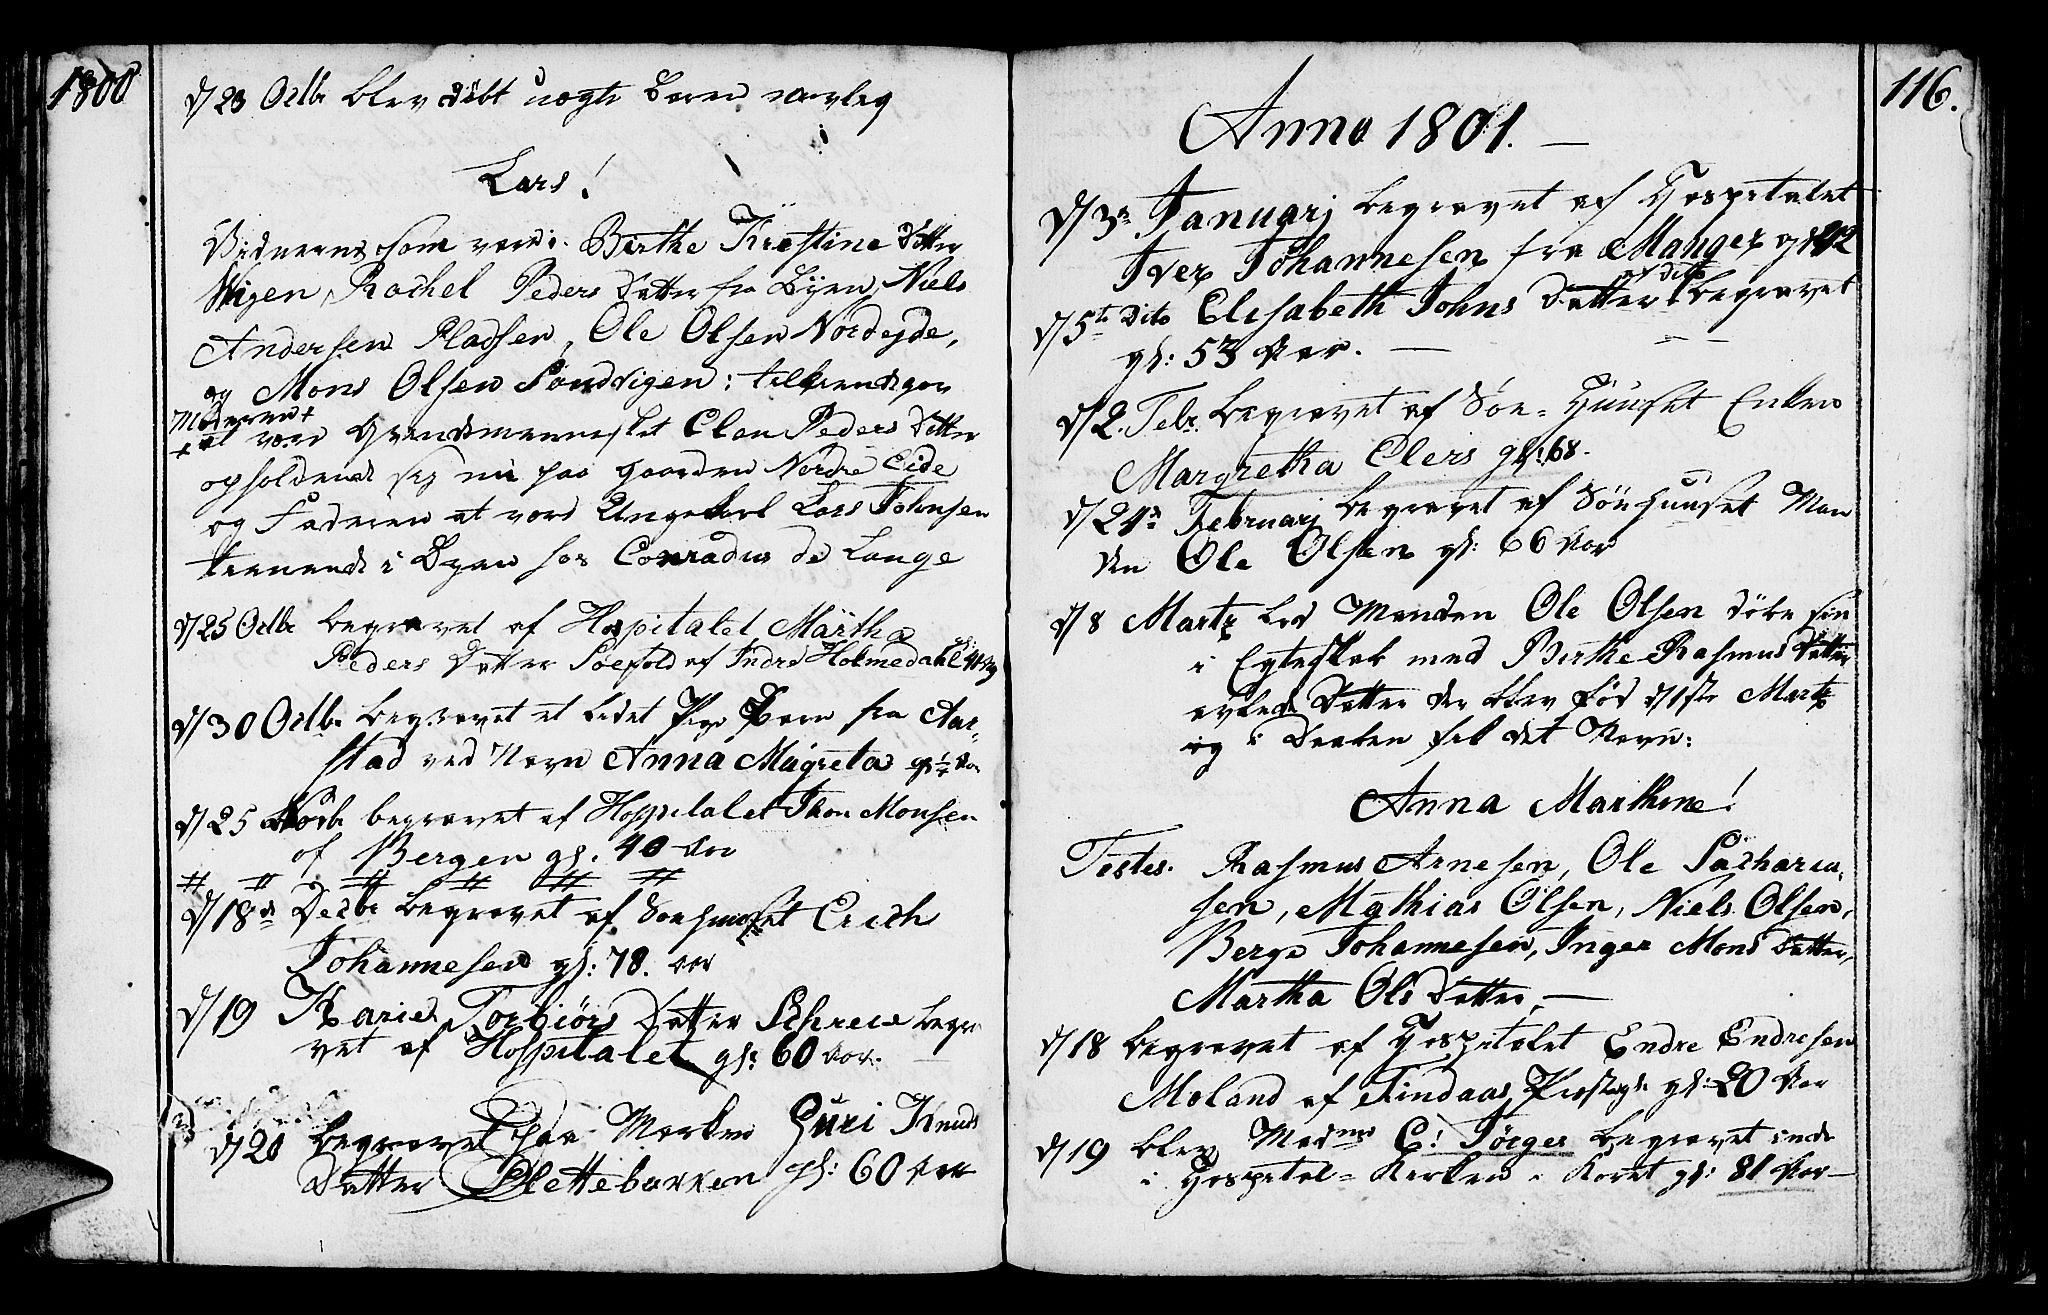 1800
d/ 23 Octbr blev döbt uægte Barn navnlig
Lars!
Vidnerne som vare: Birthe Kirstine Datter
Wigen, Rachel Peders Datter fra Byen, Niels
Andersen Pladsen, Ole Olsen Nordeyde,
og Mons Olsen Sandvigen:
Moderen +
+ at være Qvindemennesket Elen Peders Datter
opholdende sig nu paa Gaarden Nordre Eide
og Faderen at være Ungekarl Lars Johnsen
tienende i Byen hos Conradus de Lange
d/ 25 Octbr begravet af Hospitalet Märtha
Peders Datter af Indre Holmedahl
d/ 30 Octbr begravet et lidet Pige Barn fra Aar-
stad ved Navn Anna Magreta
d/ 25 Novbr begravet af Hospitalet Thom Monsen
af Bergen gl. 40 Aar
d/ 18de Decbr begravet af Söehuuset Erich
Johannesen gl: 78. aar
d/ 19 Karie Torbiörs Datter Schreie begra
vet af Hospitalet gl: 60 Aar. —
d/ 20 begravet paa Marken Guri Knuds
Datter Slettebakken gl: 60 Aar
116.
Anno 1801. —
d/ 3de Januarj begravet af Hospitalet
Iver Johannesen fra Manger gl: 42
af dito
d/ 5te dito Elisabeth Johns Datter begravet
gl: 53 Aar. —
d/ 2. Febr. begravet af Söe-Huuset Enken
Margretha Elers gl: 68.
d/ 24de Februarj begravet af Söehuuset Man
den Ole Olsen gl: 66 Aar
d/ 8 Martz lod Manden Ole Olsen döbe sin
i Egteskab med Birthe Rasmus Datter
avlede Datter der blev föd d/ 1ste Martz
og i Daaben fik det Navn:
Anna Marthine!
Testes. Rasmus Arnesen, Ole Sacharia-
sen, Mathias Olsen, Niels Olsen,
Berge Johannesen, Inger Mons Datter,
Martha Ols Datter, —
d/ 18 begravet af Hospitalet Endre Endresen
Moland af Findaas Præstegl: gl: 20 Aar
d/ 19 blev Madme E: Jörger begravet inde
i Hospital-Kirken i Koret gl: 81 Aar —